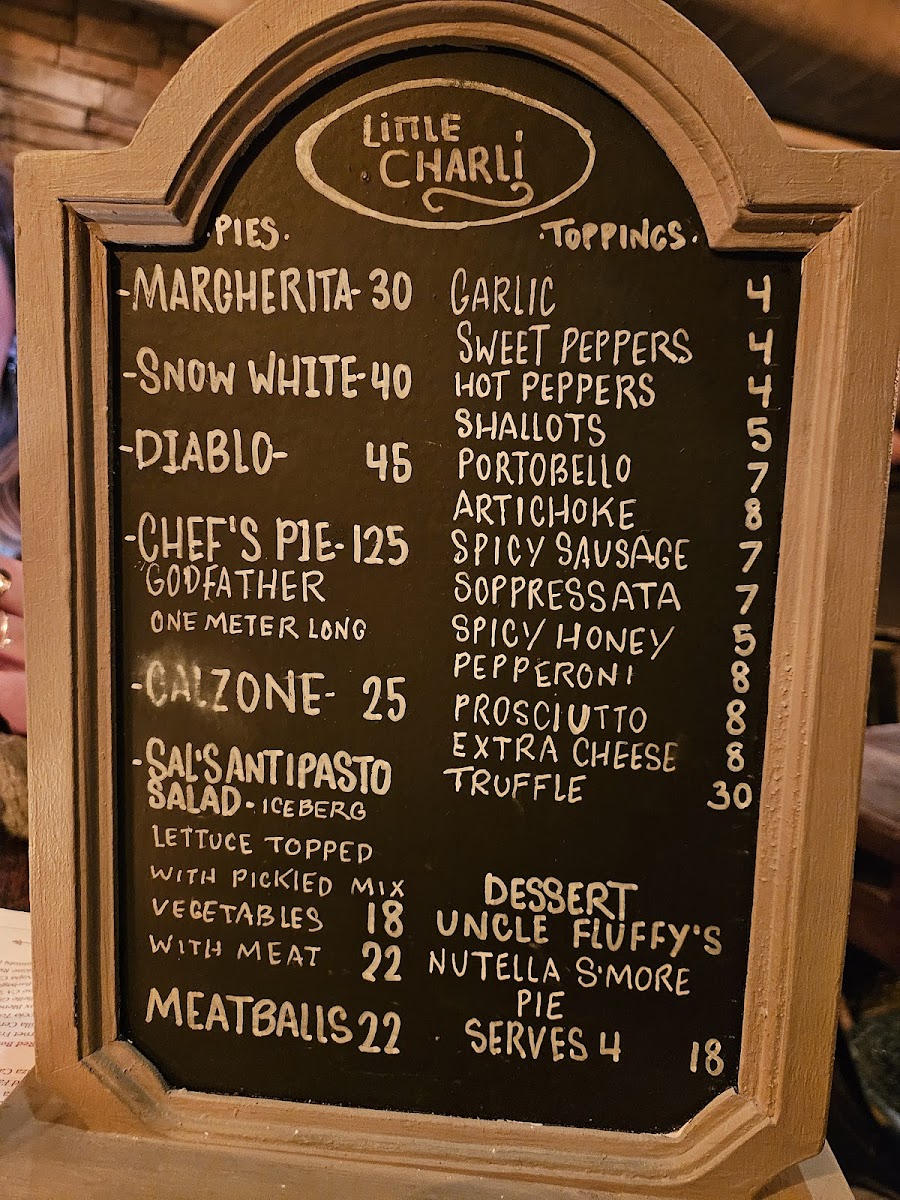 LITTLE
CHARLI
·PIES·
-MARGHERITA- 30
-SNOW WHITE- 40
-DIABLO- 45
-CHEF'S PIE- 125
"GODFATHER
ONE METER LONG
-CALZONE- 25
-SAL'S ANTIPASTO
SALAD - ICEBERG
LETTUCE TOPPED
WITH PICKIED MIX
VEGETABLES 18
WITH MEAT 22
MEATBALLS 22
·TOPPINGS·
GARLIC 4
SWEET PEPPERS 4
HOT PEPPERS 4
SHALLOTS 5
PORTOBELLO 7
ARTICHOKE 8
SPICY SAUSAGE 7
SOPPRESSATA 7
SPICY HONEY 5
PEPPERONI 8
PROSCIUTTO 8
EXTRA CHEESE 8
TRUFFLE 30
DESSERT
UNCLE FLUFFY'S
NUTELLA S'MORE
PIE
SERVES 4 18